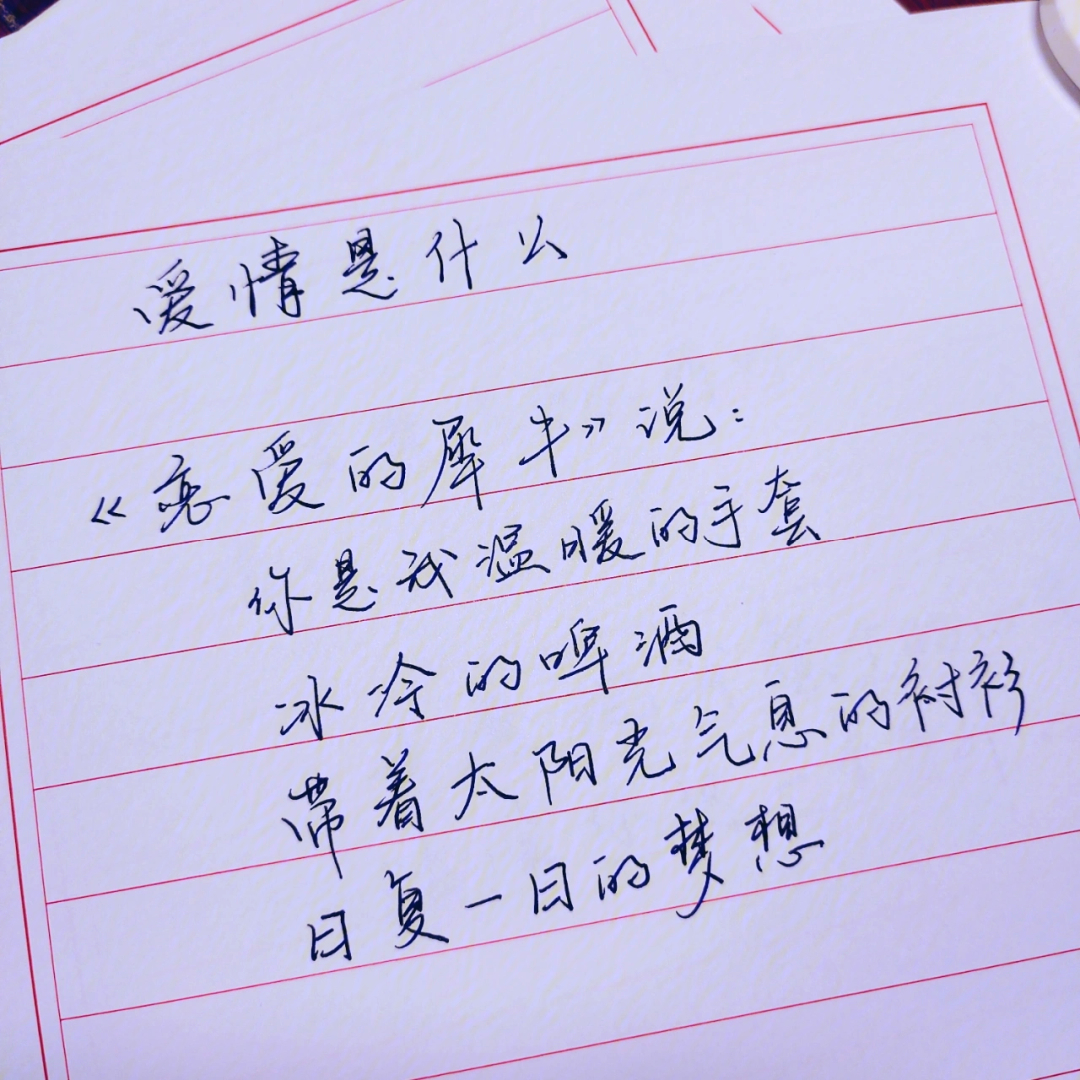 爱情是什么
《恋爱的犀牛》说：
你是我温暖的手套
冰冷的啤酒
带着太阳光气息的衬衫
日复一日的梦想